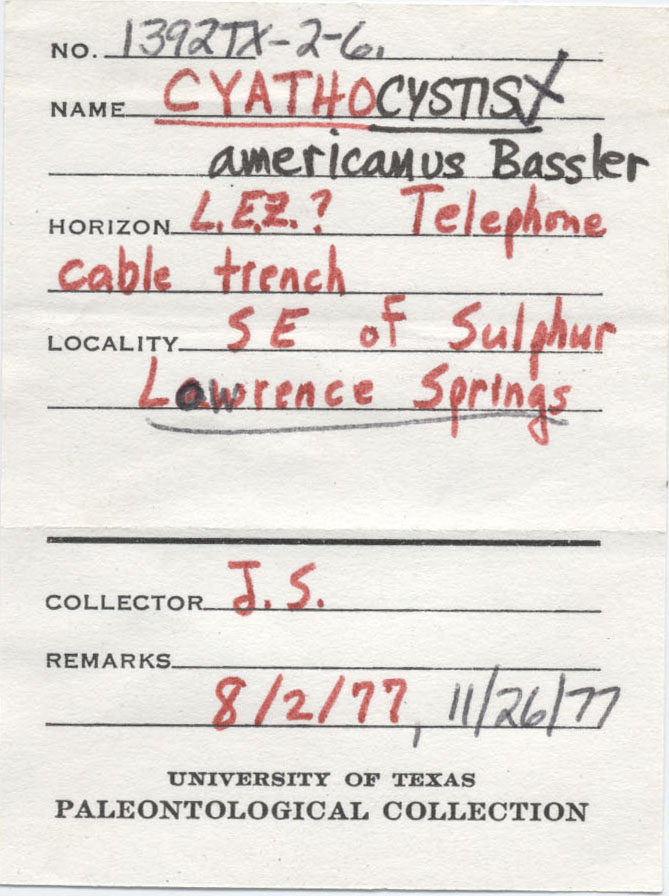 NO. 1392TX-2-6.
NAME CYATHOCYSTIS
americanus Bassler
HORIZON L.E.Z.? Telephone
cable trench
LOCALITY SE of Sulphur
Lawrence Springs
COLLECTOR J.S.
REMARKS
8/2/77, 11/26/77
UNIVERSITY OF TEXAS
PALEONTOLOGICAL COLLECTION